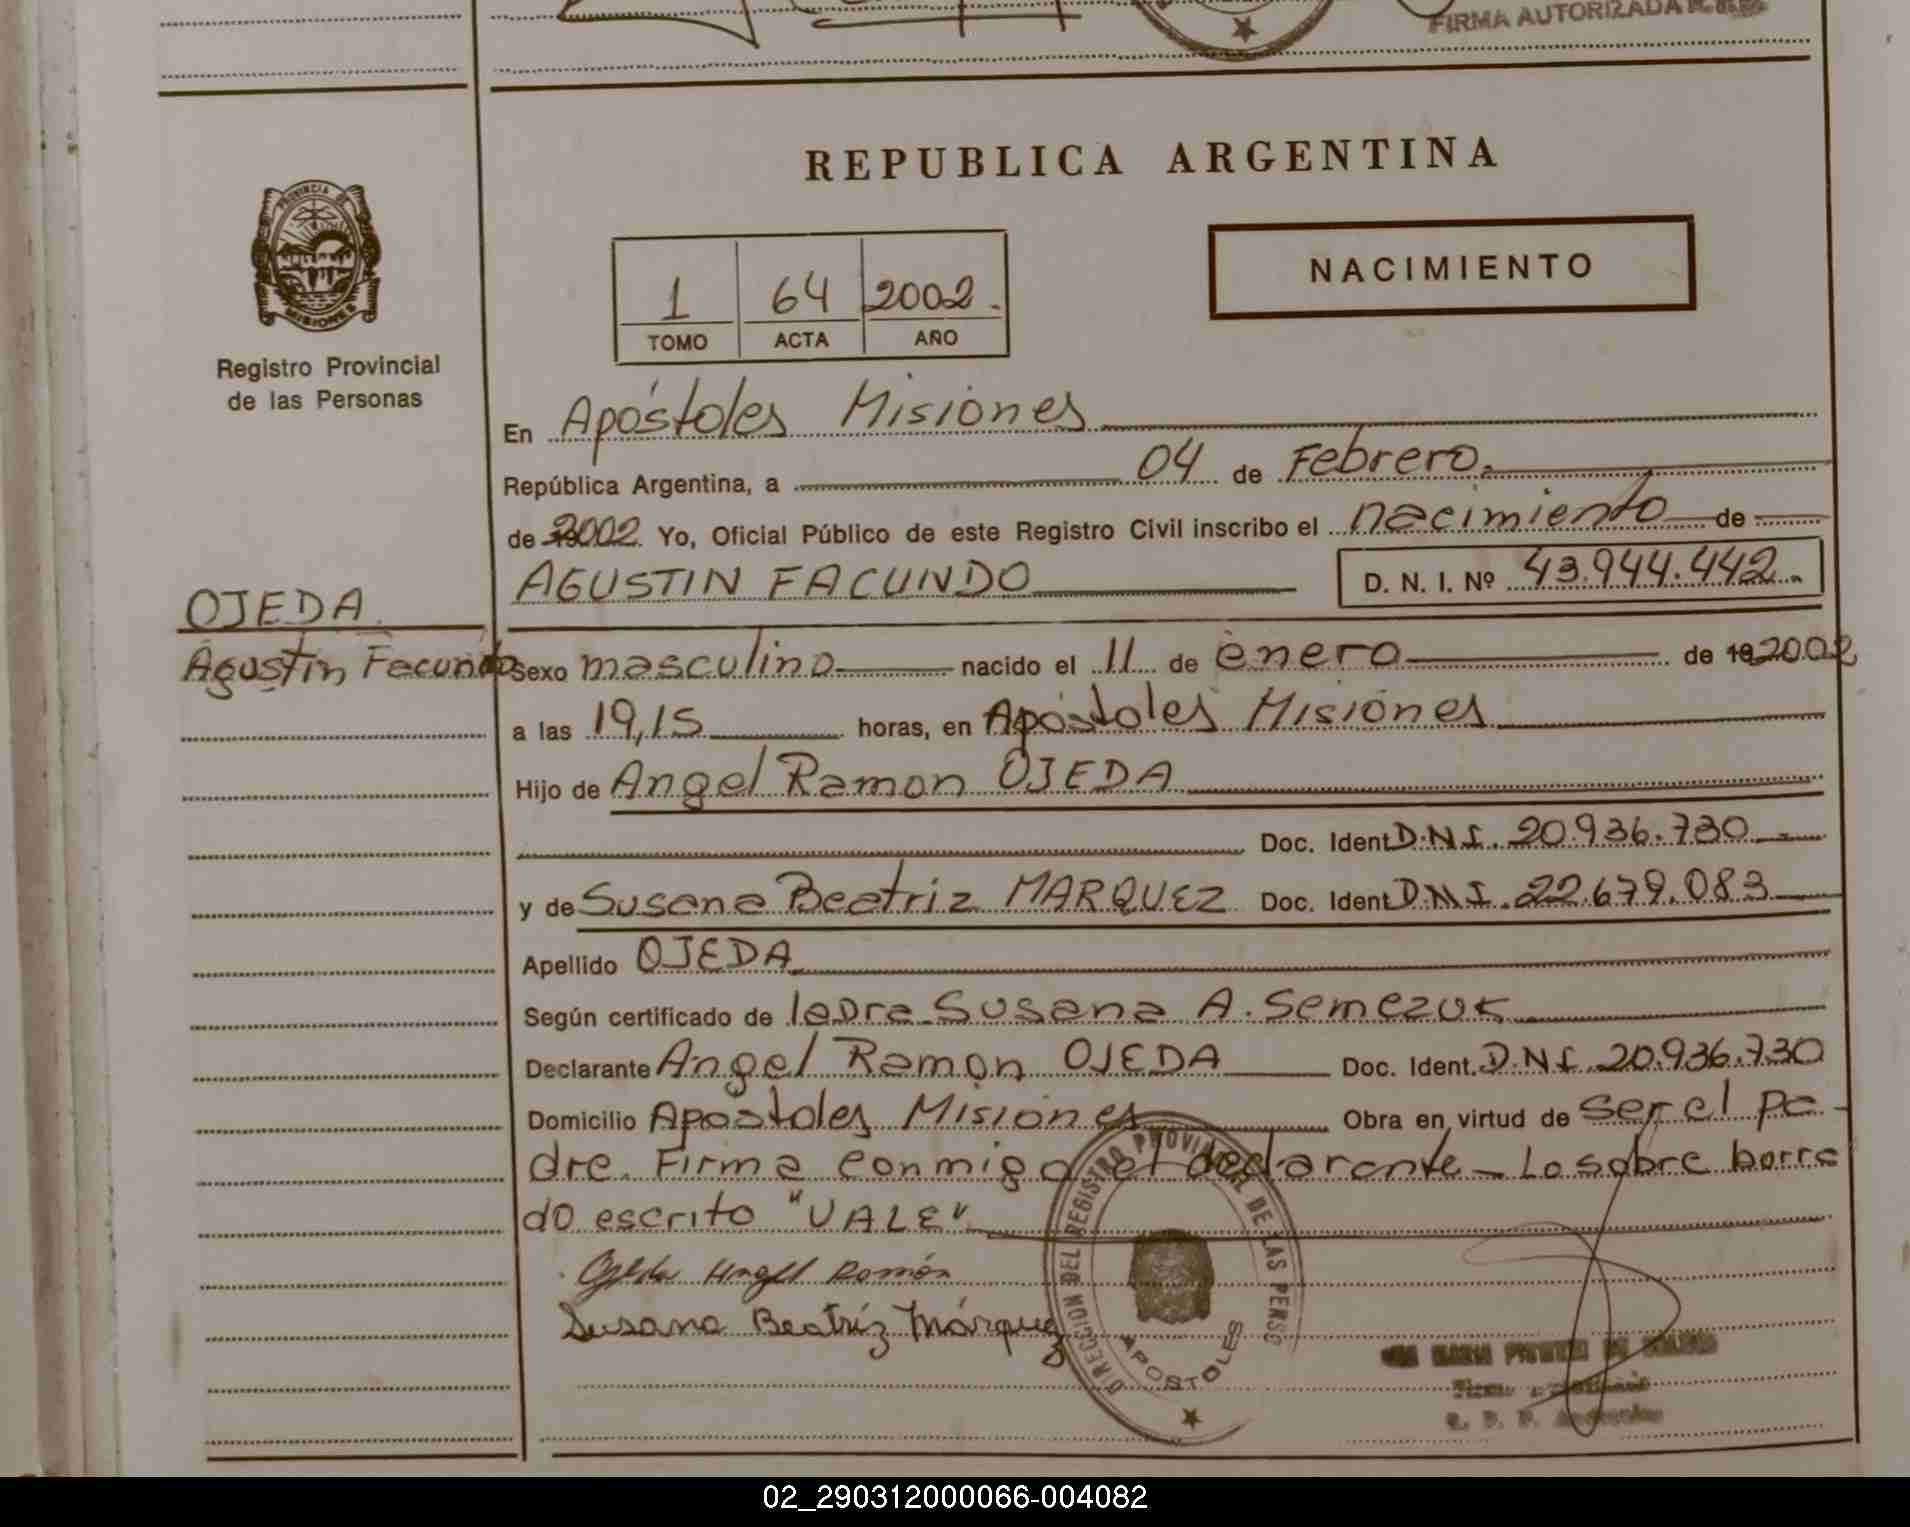 FIRMA AUTORIZADA
REPUBLICA ARGENTINA
PROVINCIA DE
MISIONES
Registro Provincial
de las Personas
1 64 2002.
TOMO ACTA AÑO
NACIMIENTO
En Apóstoles Misiones
República Argentina, a 04 de Febrero.
de 2002 Yo, Oficial Público de este Registro Civil inscribo el nacimiento de
AGUSTIN FACUNDO D. N. I. Nº 43.944.442.
OJEDA
Agustin Facundo
Sexo masculino nacido el 11 de enero de 19 2002
a las 19,15 horas, en Apóstoles Misiones
Hijo de Angel Ramon OJEDA
Doc. Ident D.N.I. 20.936.730
y de Susana Beatriz MARQUEZ Doc. Ident D.N.I. 22.679.083
Apellido OJEDA
Según certificado de la Dra. Susana A. Semezuk
Declarante Angel Ramon OJEDA Doc. Ident. D.N.I. 20.936.730
Domicilio Apóstoles Misiones Obra en virtud de ser el pa-
dre. Firma conmigo el declarante_ Lo sobre borra
do escrito "VALE"
Ojeda Angel Ramón
Susana Beatríz Márquez
DIRECCION DEL REGISTRO PROVINCIAL DE LAS PERSO
APOSTOLES
02_290312000066-004082